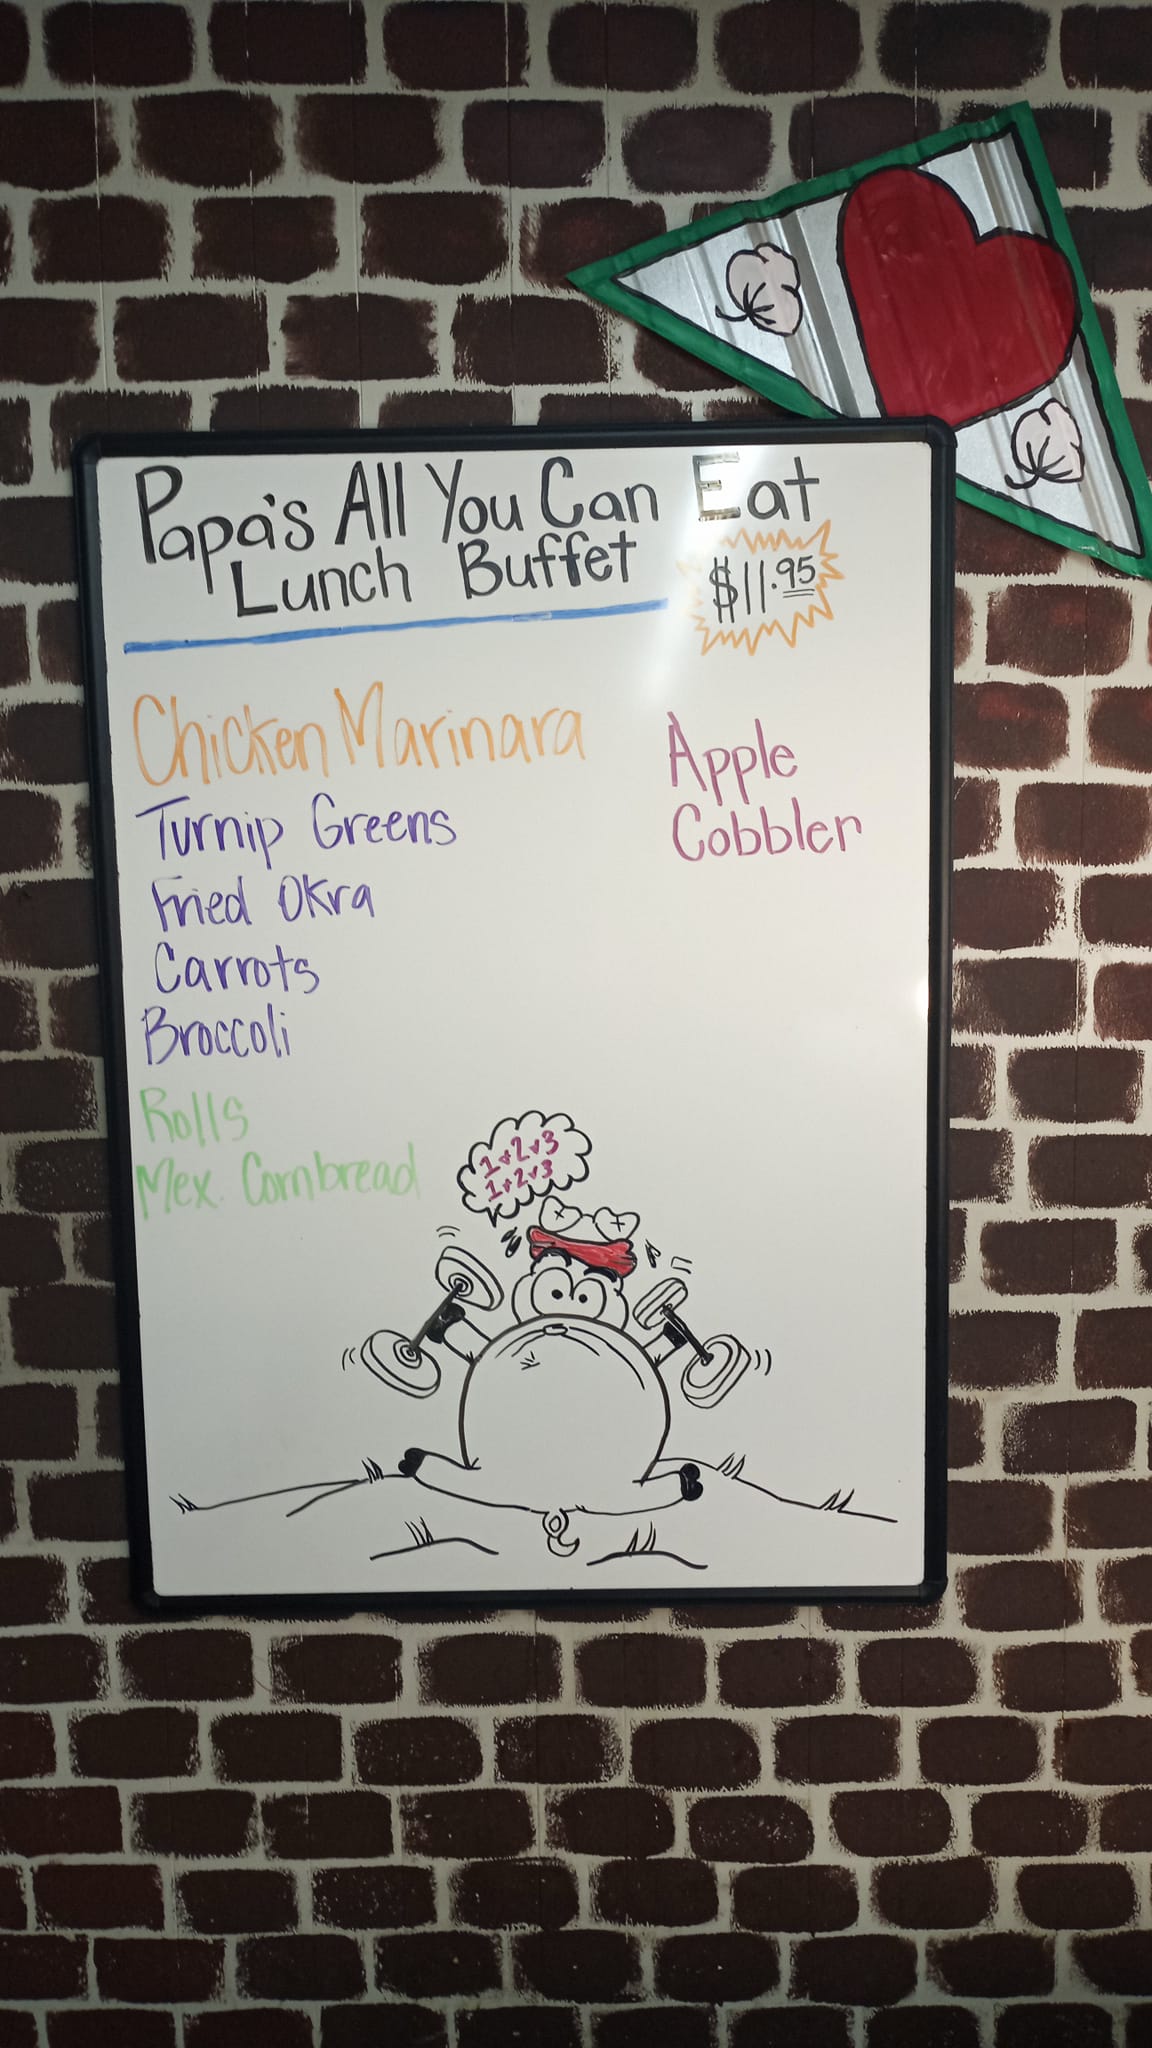 Papa's All You Can Eat
Lunch Buffet
$11.95
Chicken Marinara
Turnip Greens
Fried Okra
Carrots
Broccoli
Rolls
Mex. Cornbread
Apple
Cobbler
1+2+3
1+2+3